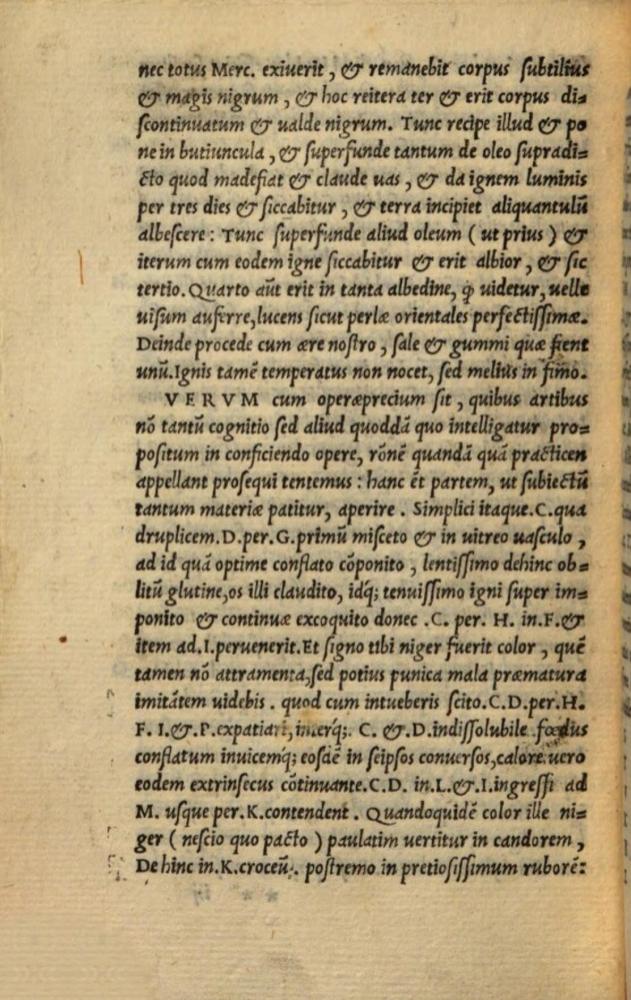 nec totus Merc. exiuerit, & remanebit corpus subtilius
& magis nigrum, & hoc reitera ter & erit corpus di-
scontinuatum & ualde nigrum. Tunc recipe illud & po
ne in butiuncula, & superfunde tantum de oleo supradi-
cto quod madefiat & claude uas, & da ignem luminis
per tres dies & siccabitur, & terra incipiet aliquantulū
albescere: Tunc superfunde aliud oleum (ut prius) &
iterum cum eodem igne siccabitur & erit albior, & sic
tertio. Quarto aūt erit in tanta albedine, ꝙ uidetur, uelle
uisum auferre, lucens sicut perlæ orientales perfectissimæ.
Deinde procede cum ære nostro, sale & gummi quæ fient
unū. Ignis tamē temperatus non nocet, sed melius in fimo.
VERVM cum operæprecium sit, quibus artibus
nō tantū cognitio sed aliud quoddā quo intelligatur pro-
positum in conficiendo opere, rōnē quandā quā practicen
appellant prosequi tentemus: hanc ēt partem, ut subiectū
tantum materiæ patitur, aperire. Simplici itaque. C. qua
druplicem. D. per. G. primū misceto & in uitreo uasculo,
ad id quā optime conflato cōponito, lentissimo dehinc ob-
litū glutine, os illi claudito, idq; tenuissimo igni super im-
ponito & continuæ excoquito donec .C. per. H. in. F. &
item ad. I. peruenerit. Et signo tibi niger fuerit color, quē
tamen nō attramenta, sed potius punica mala præmatura
imitātem uidebis. quod cum intueberis scito. C. D. per. H.
F. I. &. P. expatiari, interq;. C. &. D. indissolubile fœdus
conflatum inuicemq; eosdē in seipsos conuersos, calore uero
eodem extrinsecus cōtinuante. C. D. in. L. &. I. ingressi ad
M. usque per. K. contendent. Quandoquidē color ille ni-
ger (nescio quo pacto) paulatim uertitur in candorem,
De hinc in. K. croceū. postremo in pretiosissimum ruborē: